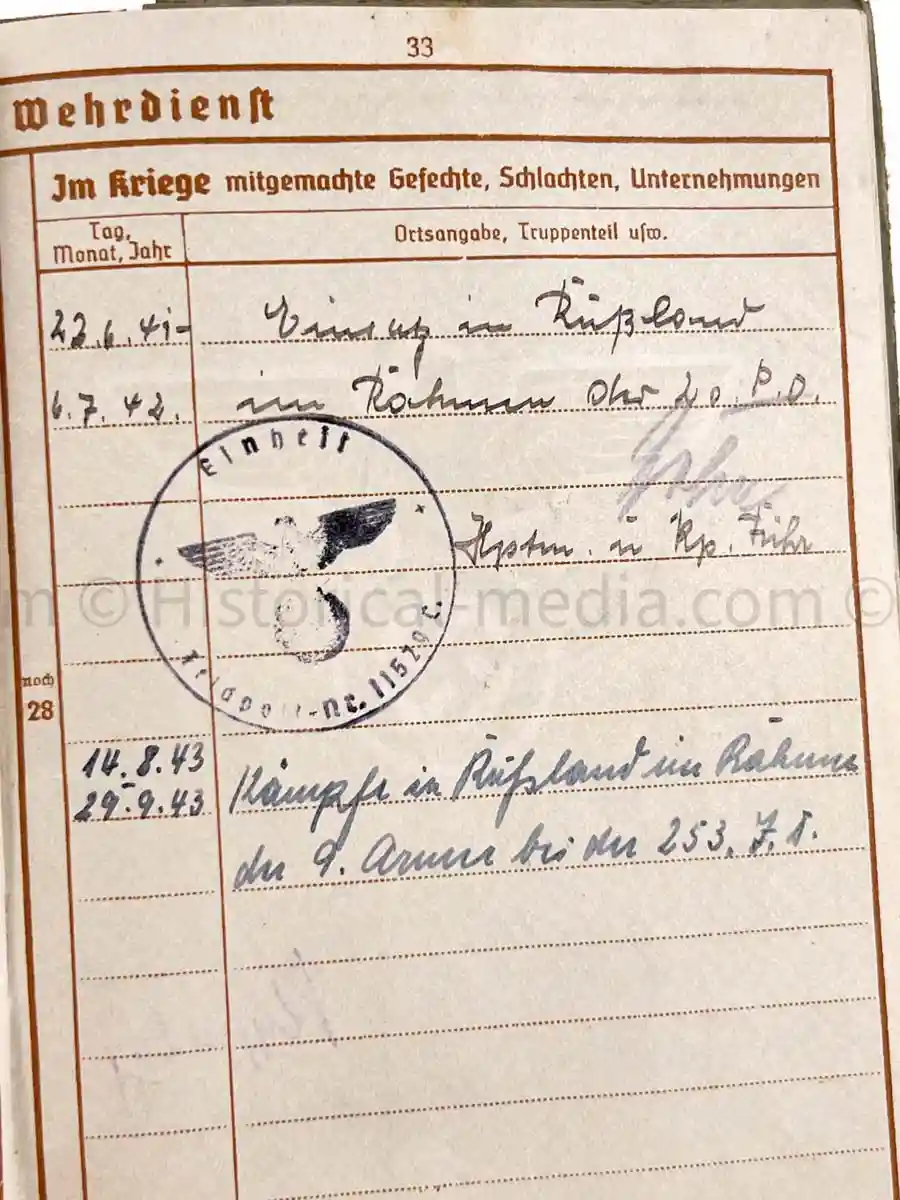 33
Wehrdienst
Im Kriege mitgemachte Gefechte, Schlachten, Unternehmungen
Tag,
Monat, Jahr
Ortsangabe, Truppenteil usw.
22.6.41-
Einsatz in Rußland
6.7.42.
im Rahmen der 20.P.D.
Einheit
Hptm. u Kp. Führ
© Historical-media.com ©
Feldpost-Nr. 11529 C.
noch
28
14.8.43
-
29.9.43
Kämpfe in Rußland im Rahmen
der 9. Armee bei der 253. I.D.